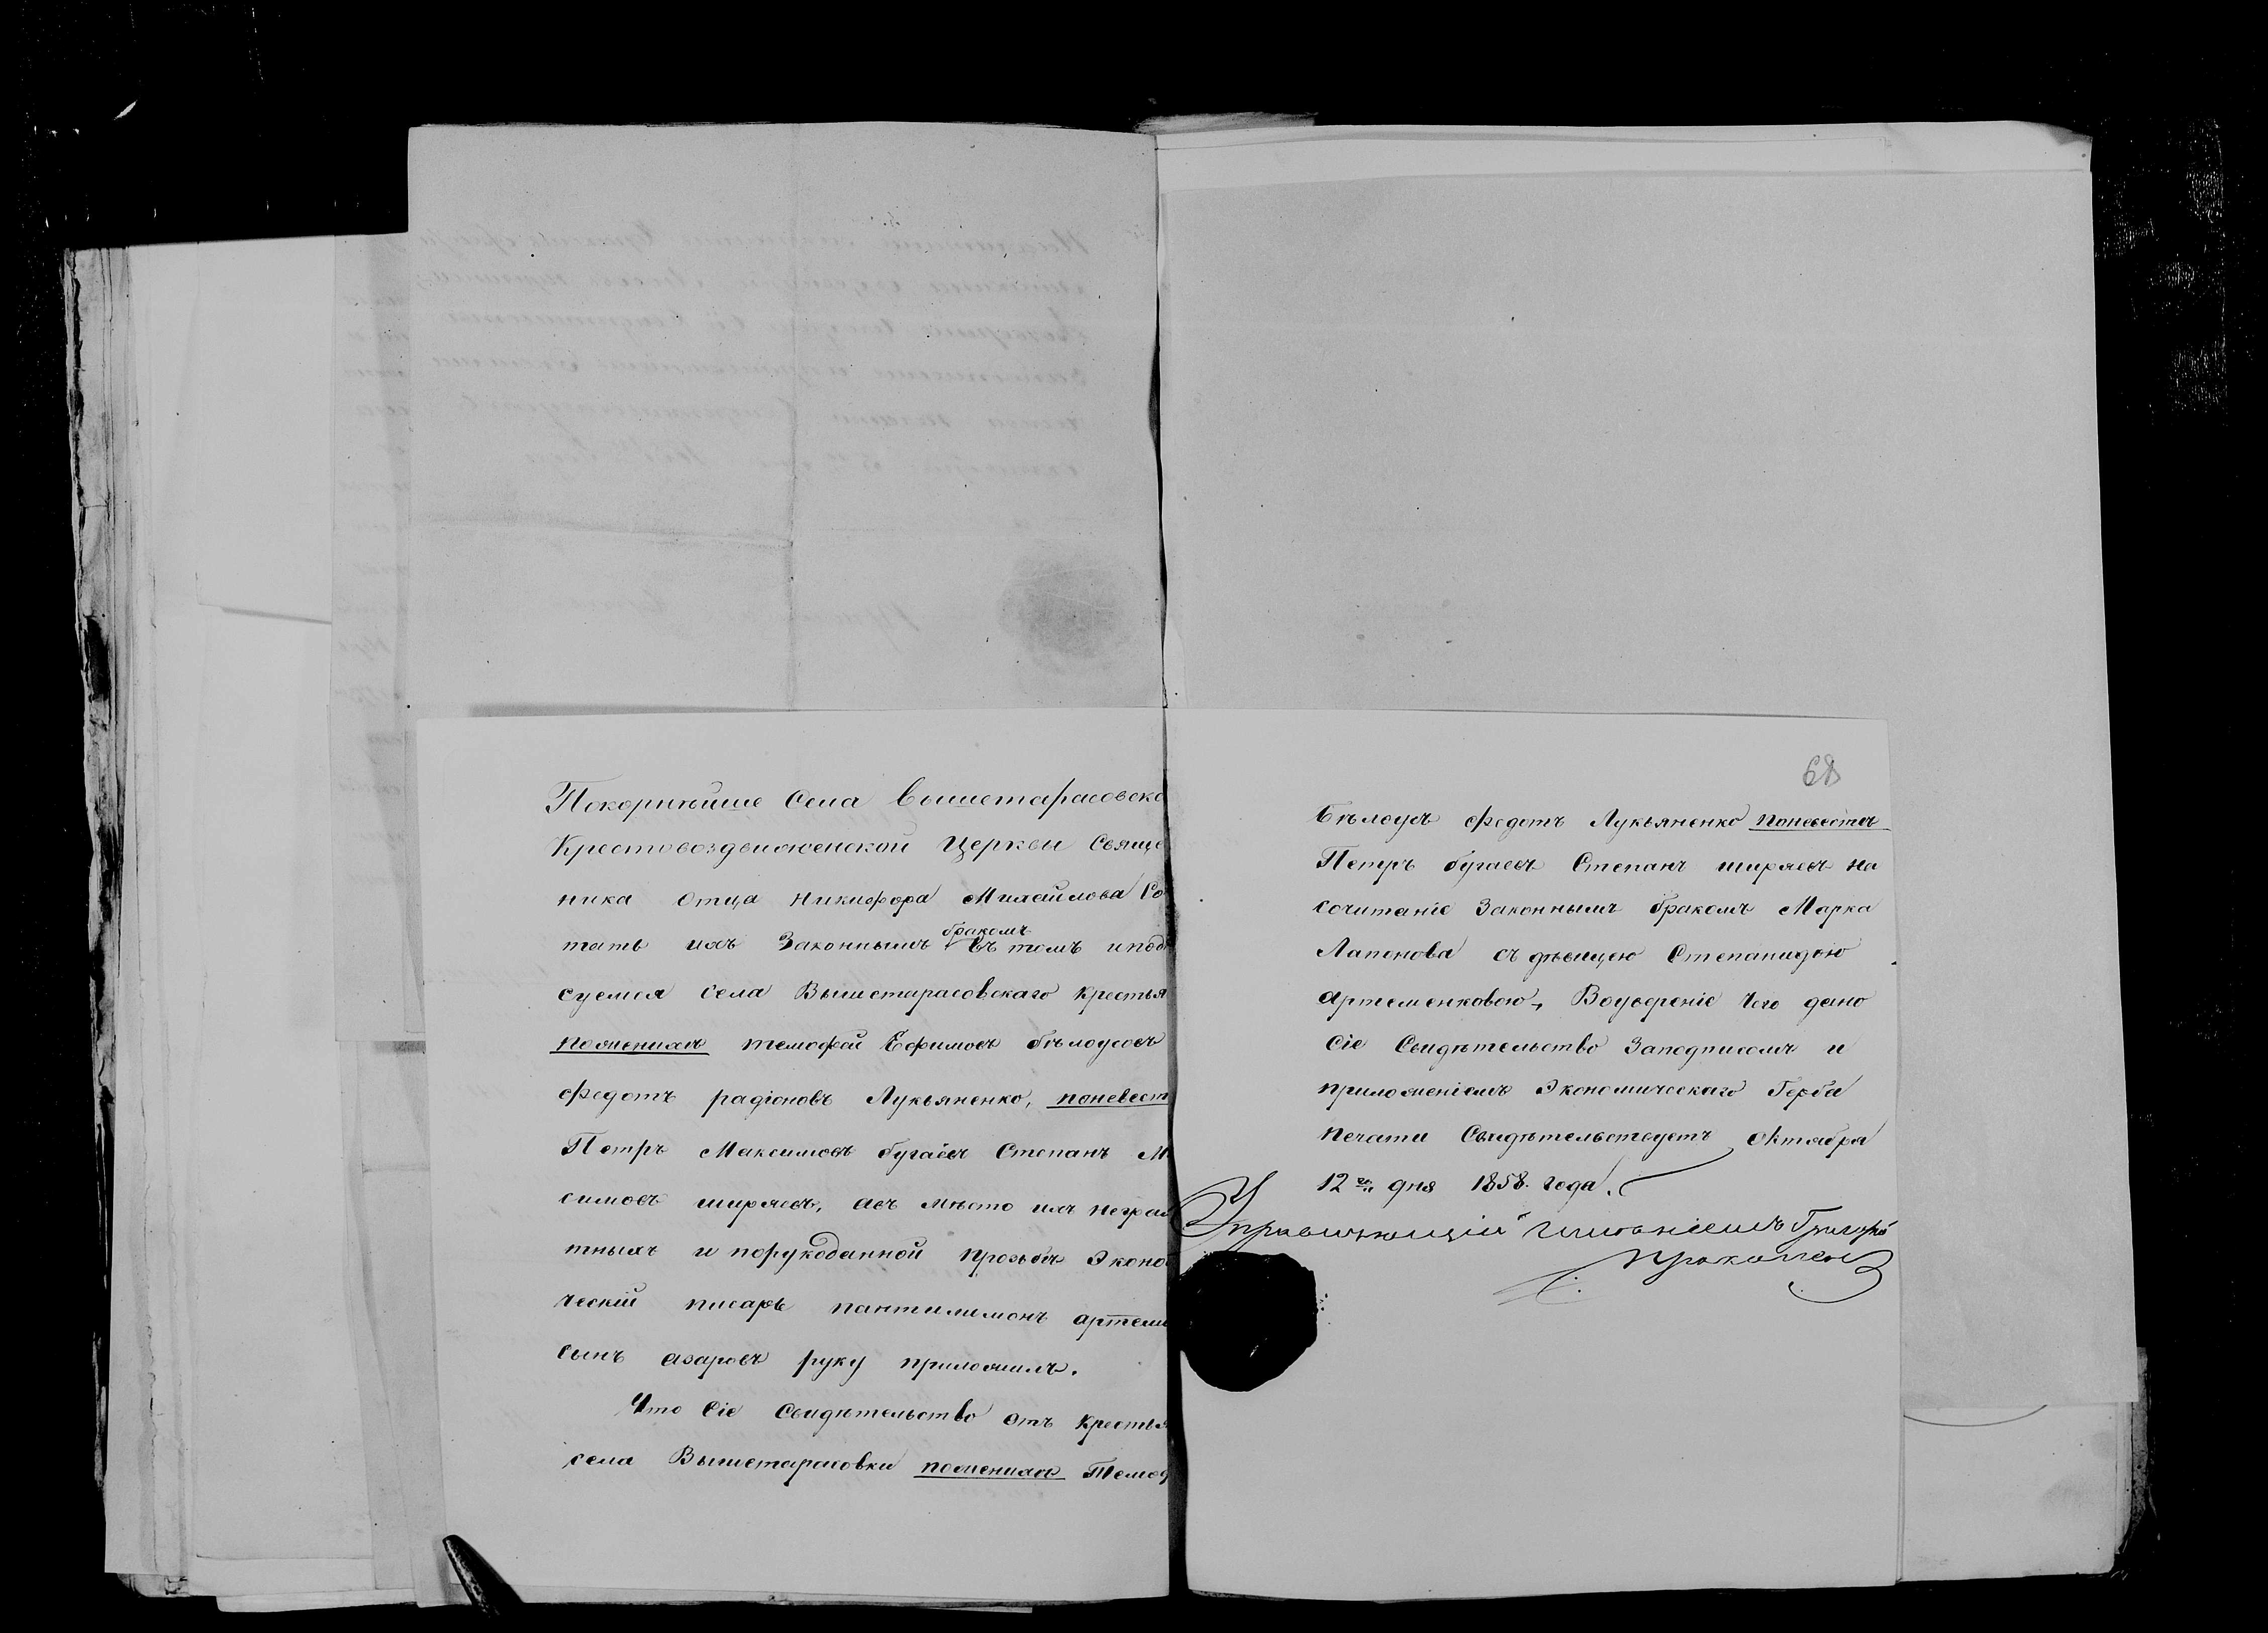 Покорнѣише Села вышетарасовско
Крестовоздвиженской Церкви Свяще
ника Отца Никифора Михайлова Со
тать ихъ Законнымъ бракомъ Въ томъ и подп
суемся села Вышетарасовскаго крестья
пожениху тимофей Ефимовъ бѣлоусовъ
Федотъ радіоновъ Лукьяненко, поневест
Петръ Максимовъ бугаевъ Степанъ М
симовъ ширяевъ, авъ мѣсто ихъ неграм
тныхъ и порукоданной прозьбѣ Эконом
ческій писарь пантилимонъ артем
сынъ азаровъ руку приложилъ.
Что Сіе Свидѣтельство отъ крестья
села Вышетарасовки пожениху Тимоф
68
бѣлоусъ Федотъ Лукьяненко поневестѣ
Петръ бугаевъ Степанъ ширяевъ на
сочитаніе Законнымъ бракомъ Марка
Лапонова съ дѣвицею Степанидою
артеменковою, Воуверенiе Чего дано
Сіе Свидѣтельство Заподписомъ и
приложеніемъ Экономическаго Герба
печати Свидѣтельствуетъ Октября
12го дня 1858. года.
Управляющій имѣніемъ Григорій